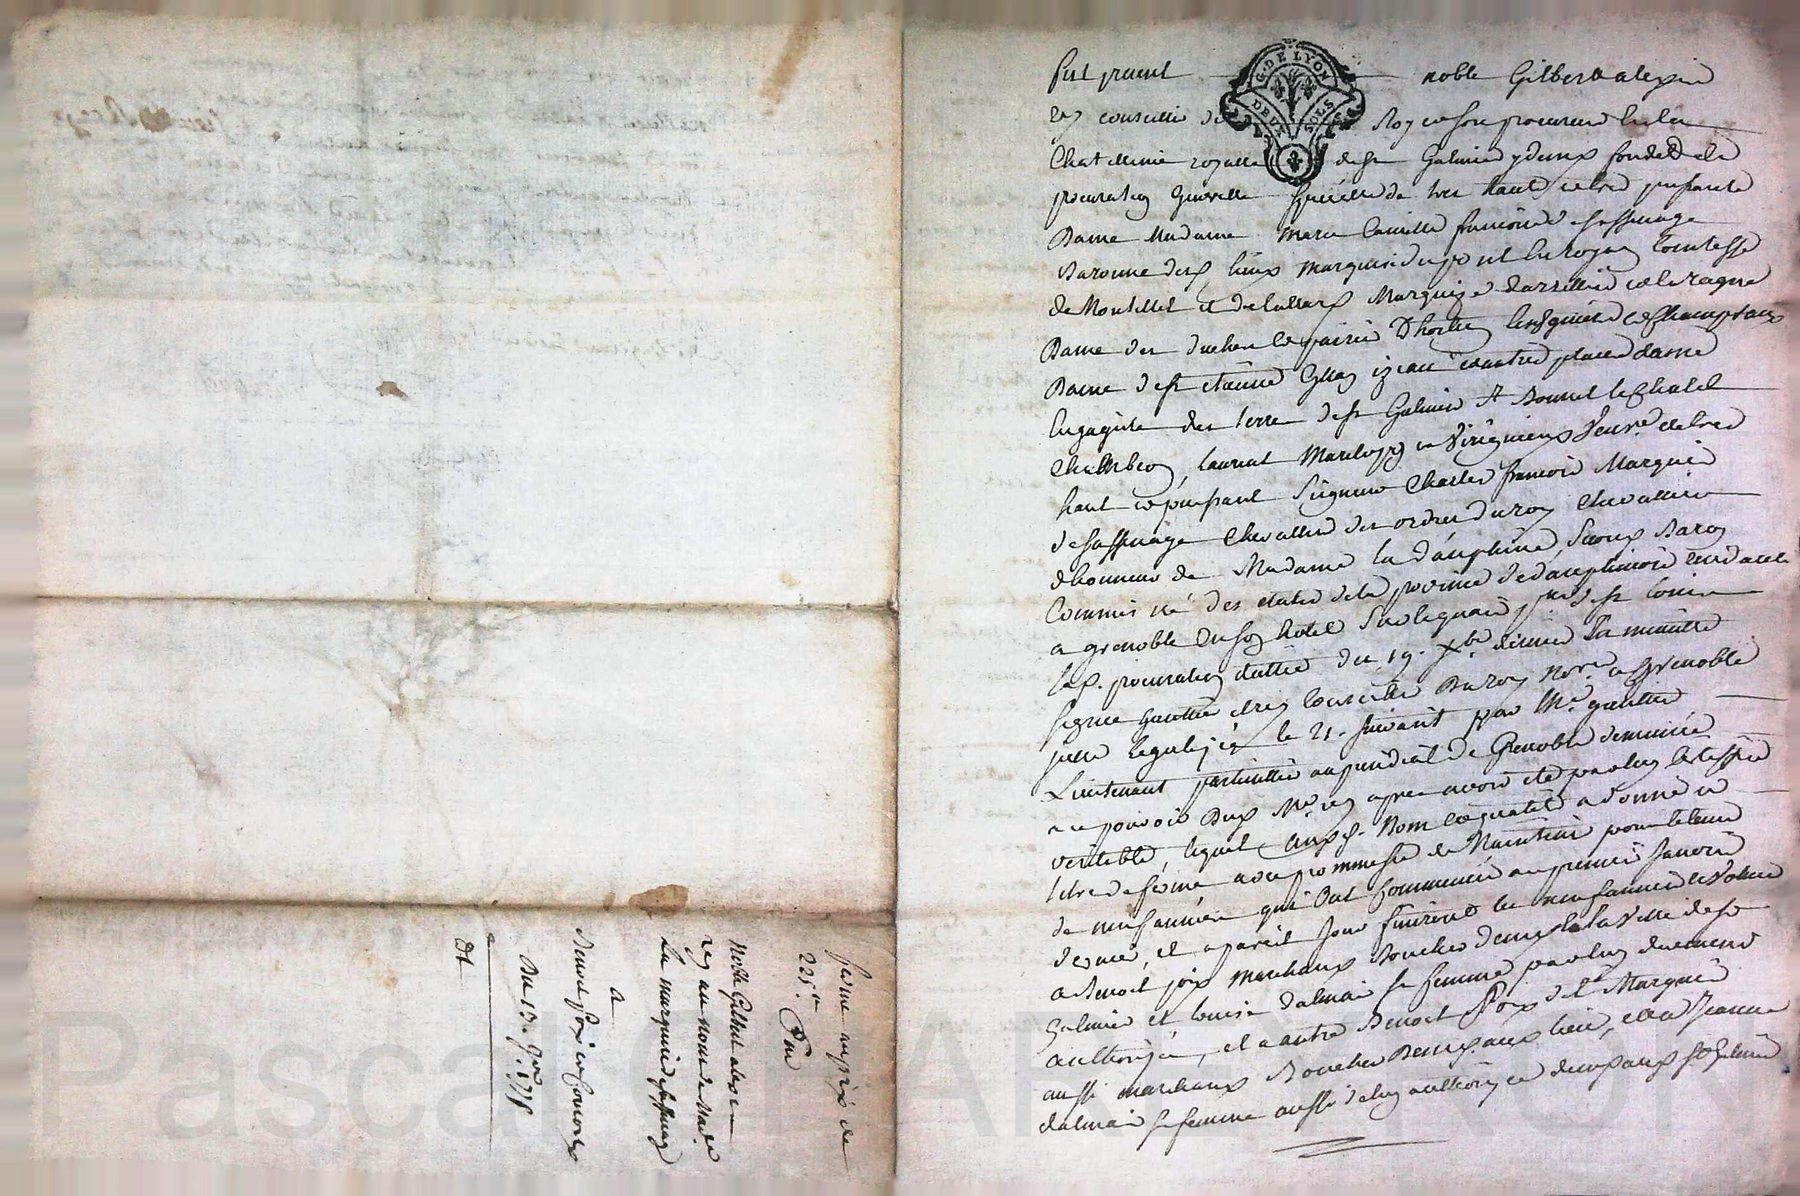 G. DE LYON
DEUX SOLS
fut présent noble Gilbert alexis
rey conseiller du Roy et son procureur en la
Chatellenie royalle de st Galmier y demt fondé de
procuration generalle specialle de tres haute et tres puissante
Dame Madame Marie Camille françoise de sassenage
Baronne desd. lieux marquise du pont en royan Comtesse
de Montellet et de Marquize darzellier et de la ragne
Dame des duchen et pairie Dhostun
Dame de st etienne izeau et autres places dame
Engagiste des terre de st Galmier st Bonnet le Chatel
Chambeon, Laurent Marclopp et Virignieux veuve de tres
haut et puissant Seigneur Charles françois Marquis
de sassenage Chevallier des ordres du roy Chevallier
dhonneur de Madame la dauphine, second Baron
Commis né des etats de la province de dauphinois residante
a grenoble en son hotel sur le quay psse de st Louis
lad. procuration dattée du 19. Xbre dernier la minutte
signée gautier et rey conseiller du roy Nore a Grenoble
icelle legalizée le 21. suivant par Mr. gautier
Lieutenant particullier au presidial de Grenoble demeurée
au pouvoir dud. Mr rey apres avoir eté par luy certiffiée
veritable, lequel auxd. nom et qualité a donné a
titre de ferme avec prommesse de Maintenir pour le tems
de neuf années qui ont commencé au premier janvier
dernier, et a pareil jour finiront les neuf années revolues
a Benoit joix marchand Boucher demt en la ville de st
Galmier et Louise dalmais sa femme par luy duement
authorizée, et a autre Benoit Joix de st Marguerit
aussi marchand Boucher demt aud. lieu, et a Jeanne
dalmais sa femme aussi de luy authorizée demt aud. st Galmier
ferme au prix de
225 ltt
Par
Noble Gilbert alexis
rey au nom de Made
La marquise de sassenage
a
Benoit joix et consorts
Du 13. 9bre 1775
dt
Pascal CHARTRON